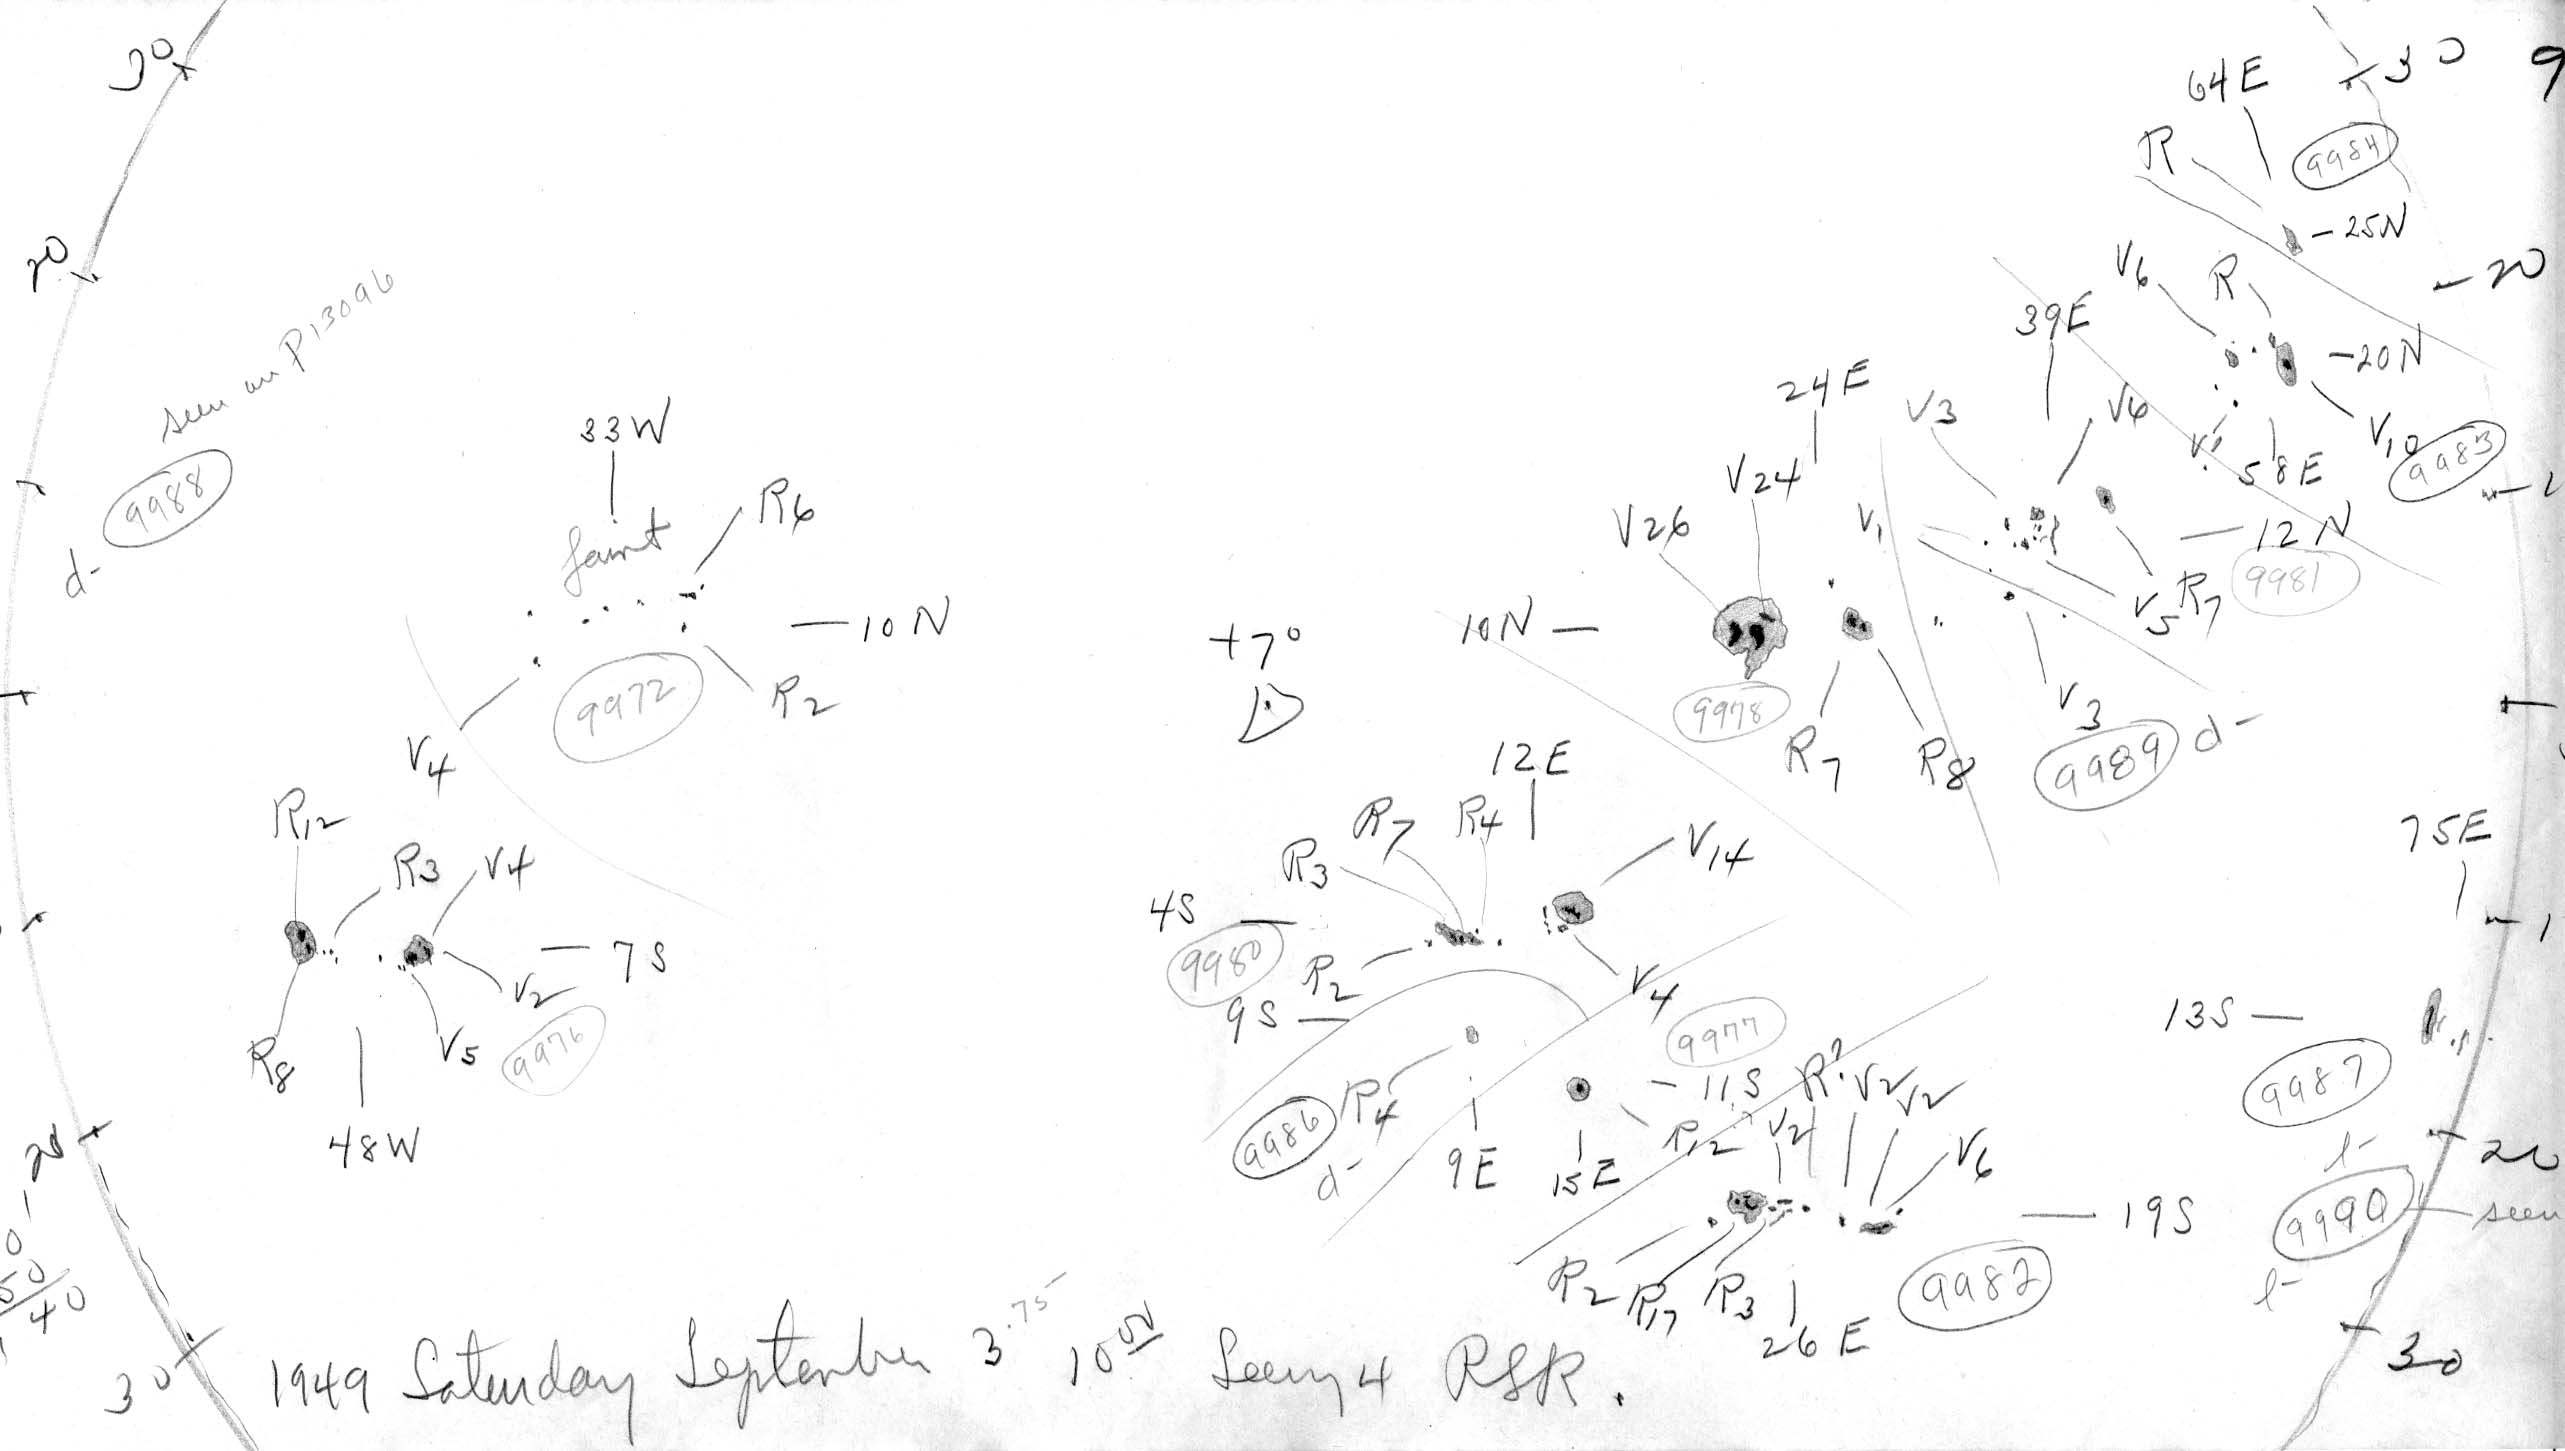 30
64E
30
9
R
9984
25N
20
20
seen on P13096
V6
R
39E
20N
33W
24E
V3
V6
V10
9983
58E
9988
d-
faint
R6
V26
V24
V1
12N
9981
V5
R7
10N
+7°
10N
9972
R2
V4
9978
V3
R7
R8
9989
d-
D
12E
R12
R3
V4
R3
R7
R4
V14
75E
4S
1
7S
9980
R2
V4
V2
9S
9977
13S
R8
V5
9976
R4
11S
R?
V2
V2
9987
9986
R12
V2
V6
l-
20
48W
d-
9E
15E
20
19S
9990
seen
l-
R2
R17
R3
9982
26E
50
40
30
1949 Saturday September 3.75 10 00 Seeing 4 RSR.
30